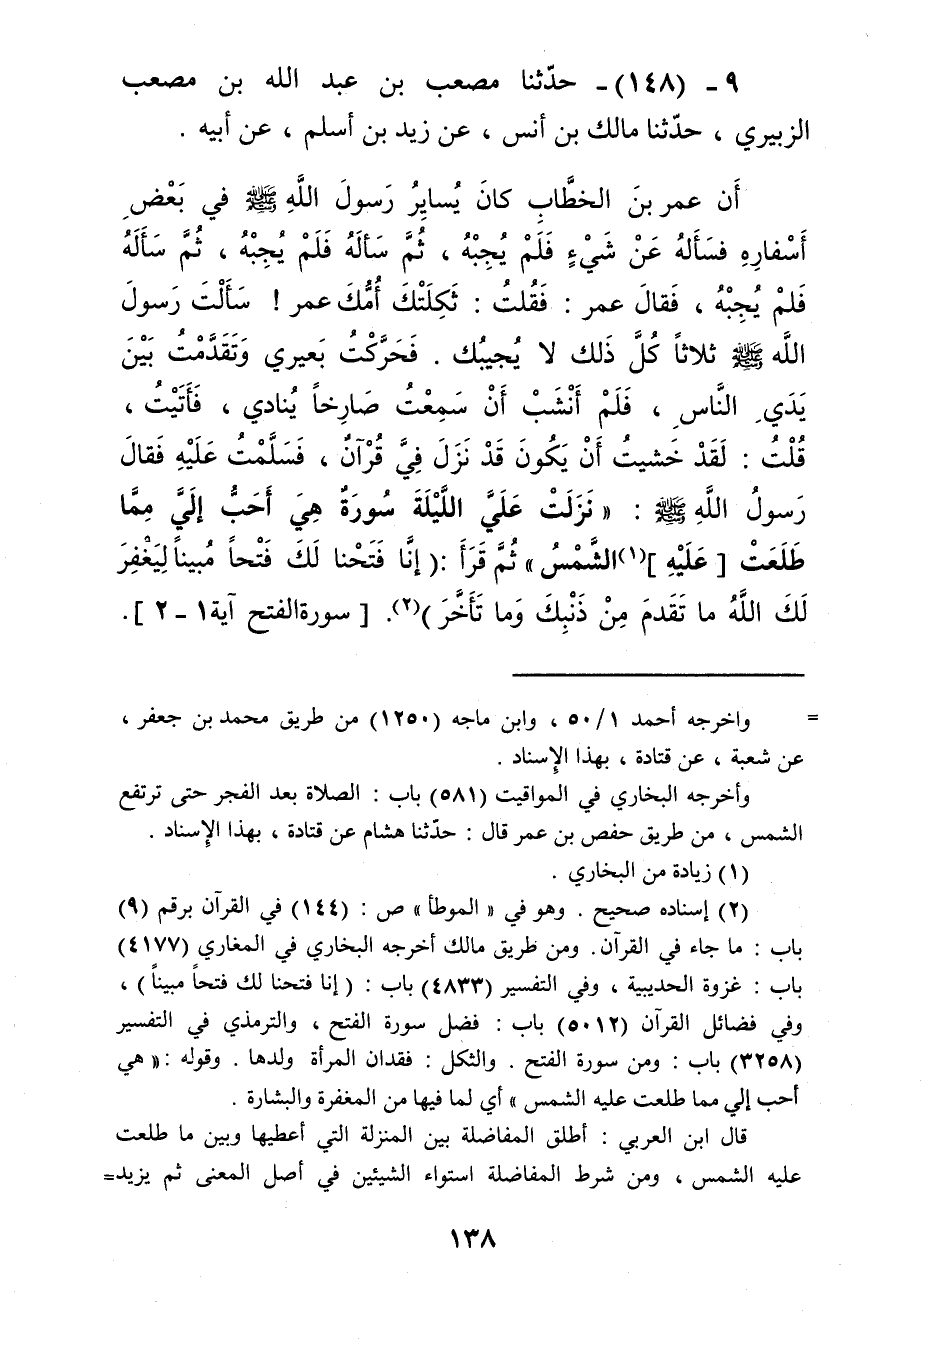 ٩ ـ (١٤٨) ـ حدّثنا مصعب بن عبد الله بن مصعب
الزبيري ، حدّثنا مالك بن أنس ، عن زيد بن أسلم ، عن أبيه .
أَن عمر بنَ الخطَّابِ كانَ يُسايِرُ رَسولَ اللَّهِ ﷺ في بَعْضِ
أَسْفارِهِ فسَأَلهُ عَنْ شَيْءٍ فَلَمْ يُجِبْهُ ، ثُمَّ سَألَهُ فَلَمْ يُجِبْهُ ، ثُمَّ سَأَلَهُ
فَلمْ يُجِبْهُ ، فَقالَ عمر : فَقُلتُ : ثَكِلَتْكَ أُمُّكَ عمر ! سَأَلْتَ رَسولَ
اللَّه ﷺ ثلاثاً كُلَّ ذَلك لا يُجيبُك . فَحَرَّكْتُ بَعيري وَتَقَدَّمْتُ بَيْنَ
يَدَي النَّاسِ ، فَلَمْ أَنْشَبْ أَنْ سَمِعْتُ صَارِخاً يُنادي ، فَأَتَيْتُ ،
قُلْتُ : لَقَدْ خَشيتُ أَنْ يَكُونَ قَدْ نَزَلَ فِيَّ قُرْآنٌ ، فَسَلَّمْتُ عَلَيْهِ فَقالَ
رَسولُ اللَّهِ ﷺ : « نَزَلَتْ عَلَيَّ اللَّيْلَةَ سُورَةٌ هِيَ أَحَبُّ إلَيَّ مِمَّا
طَلَعَتْ [ عَلَيْهِ ](١) الشَّمْسُ » ثُمَّ قَرَأَ :( إنَّا فَتَحْنا لَكَ فَتْحاً مُبيناً لِيَغْفِرَ
لَكَ اللَّهُ ما تَقَدمَ مِنْ ذَنْبِكَ وَما تَأَخَّرَ )(٢). [ سورةالفتح آية١ ـ ٢ ].
= واخرجه أحمد ١/ ٥٠ ، وابن ماجه (١٢٥٠) من طريق محمد بن جعفر ،
عن شعبة ، عن قتادة ، بهذا الإسناد .
وأخرجه البخاري في المواقيت (٥٨١) باب : الصلاة بعد الفجر حتى ترتفع
الشمس ، من طريق حفص بن عمر قال : حدّثنا هشام عن قتادة ، بهذا الإسناد .
(١) زيادة من البخاري .
(٢) إسناده صحيح . وهو في « الموطأ » ص : (١٤٤) في القرآن برقم (٩)
باب : ما جاء في القرآن. ومن طريق مالك أخرجه البخاري في المغاري (٤١٧٧)
باب : غزوة الحديبية ، وفي التفسير (٤٨٣٣) باب : ( إنا فتحنا لك فتحاً مبيناً ) ،
وفي فضائل القرآن (٥٠١٢) باب : فضل سورة الفتح ، والترمذي في التفسير
(٣٢٥٨) باب : ومن سورة الفتح . والثكل : فقدان المرأة ولدها . وقوله :« هي
أحب إلي مما طلعت عليه الشمس » أي لما فيها من المغفرة والبشارة .
قال ابن العربي : أطلق المفاضلة بين المنزلة التي أعطيها وبين ما طلعت
عليه الشمس ، ومن شرط المفاضلة استواء الشيئين في أصل المعنى ثم يزيد=
١٣٨